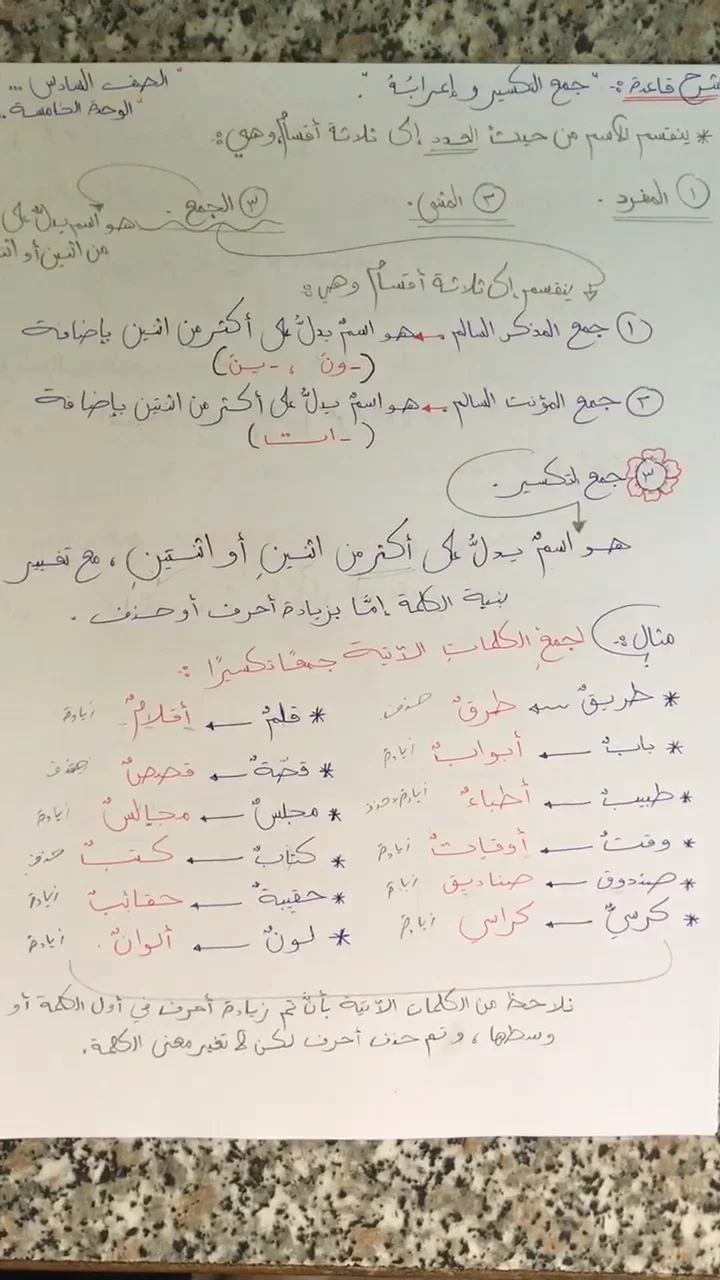 شرح قاعدة :- "جمع التكسير وإعرابُهُ".
"الصف السادس ...
"الوحدة الخامسة.
* ينقسم الاسم من حيث العدد إلى ثلاثة أقسامٍ، وهي:
١ المفرد . ٢ المثنى . ٣ الجمع
هو اسم يدلُّ على
من اثنين أو
ينقسم إلى ثلاثة أقسامٍ وهي:
١ جمع المذكر السالم ← هو اسمٌ يدلُّ على أكثر من اثنين بإضافة
(ـونَ ، ـينَ)
٢ جمع المؤنث السالم ← هو اسمٌ يدلُّ على أكثر من اثنتين بإضافة
(ـات)
٣ جمع التكسير.
هو اسمٌ يدلُّ على أكثر من اثنينِ أو اثنتينِ ، مع تغيير
بنية الكلمة إمّا بزيادة أحرف أو حذف .
مثال :- لجمعِ الكلماتِ الآتية جمعًا تكسيرًا :
* طريقٌ ← طرقٌ حذف * قلمٌ ← أقلامٌ زيادة
* بابٌ ← أبوابٌ زيادة * قصّةٌ ← قصصٌ حذف
* طبيبٌ ← أطباءٌ زيادة وحذف * مجلسٌ ← مجالسٌ زيادة
* وقتٌ ← أوقاتٌ زيادة * كتابٌ ← كتبٌ حذف
* صندوق ← صناديق زيادة * حقيبةٌ ← حقائبٌ زيادة
* كرسيٌّ ← كراسي زيادة * لونٌ ← ألوانٌ زيادة
نلاحظ من الكلمات الآتية بأنَّ تم زيادة أحرف في أول الكلمة أو
وسطها ، وتم حذف أحرف لكن لا تغير معنى الكلمة.